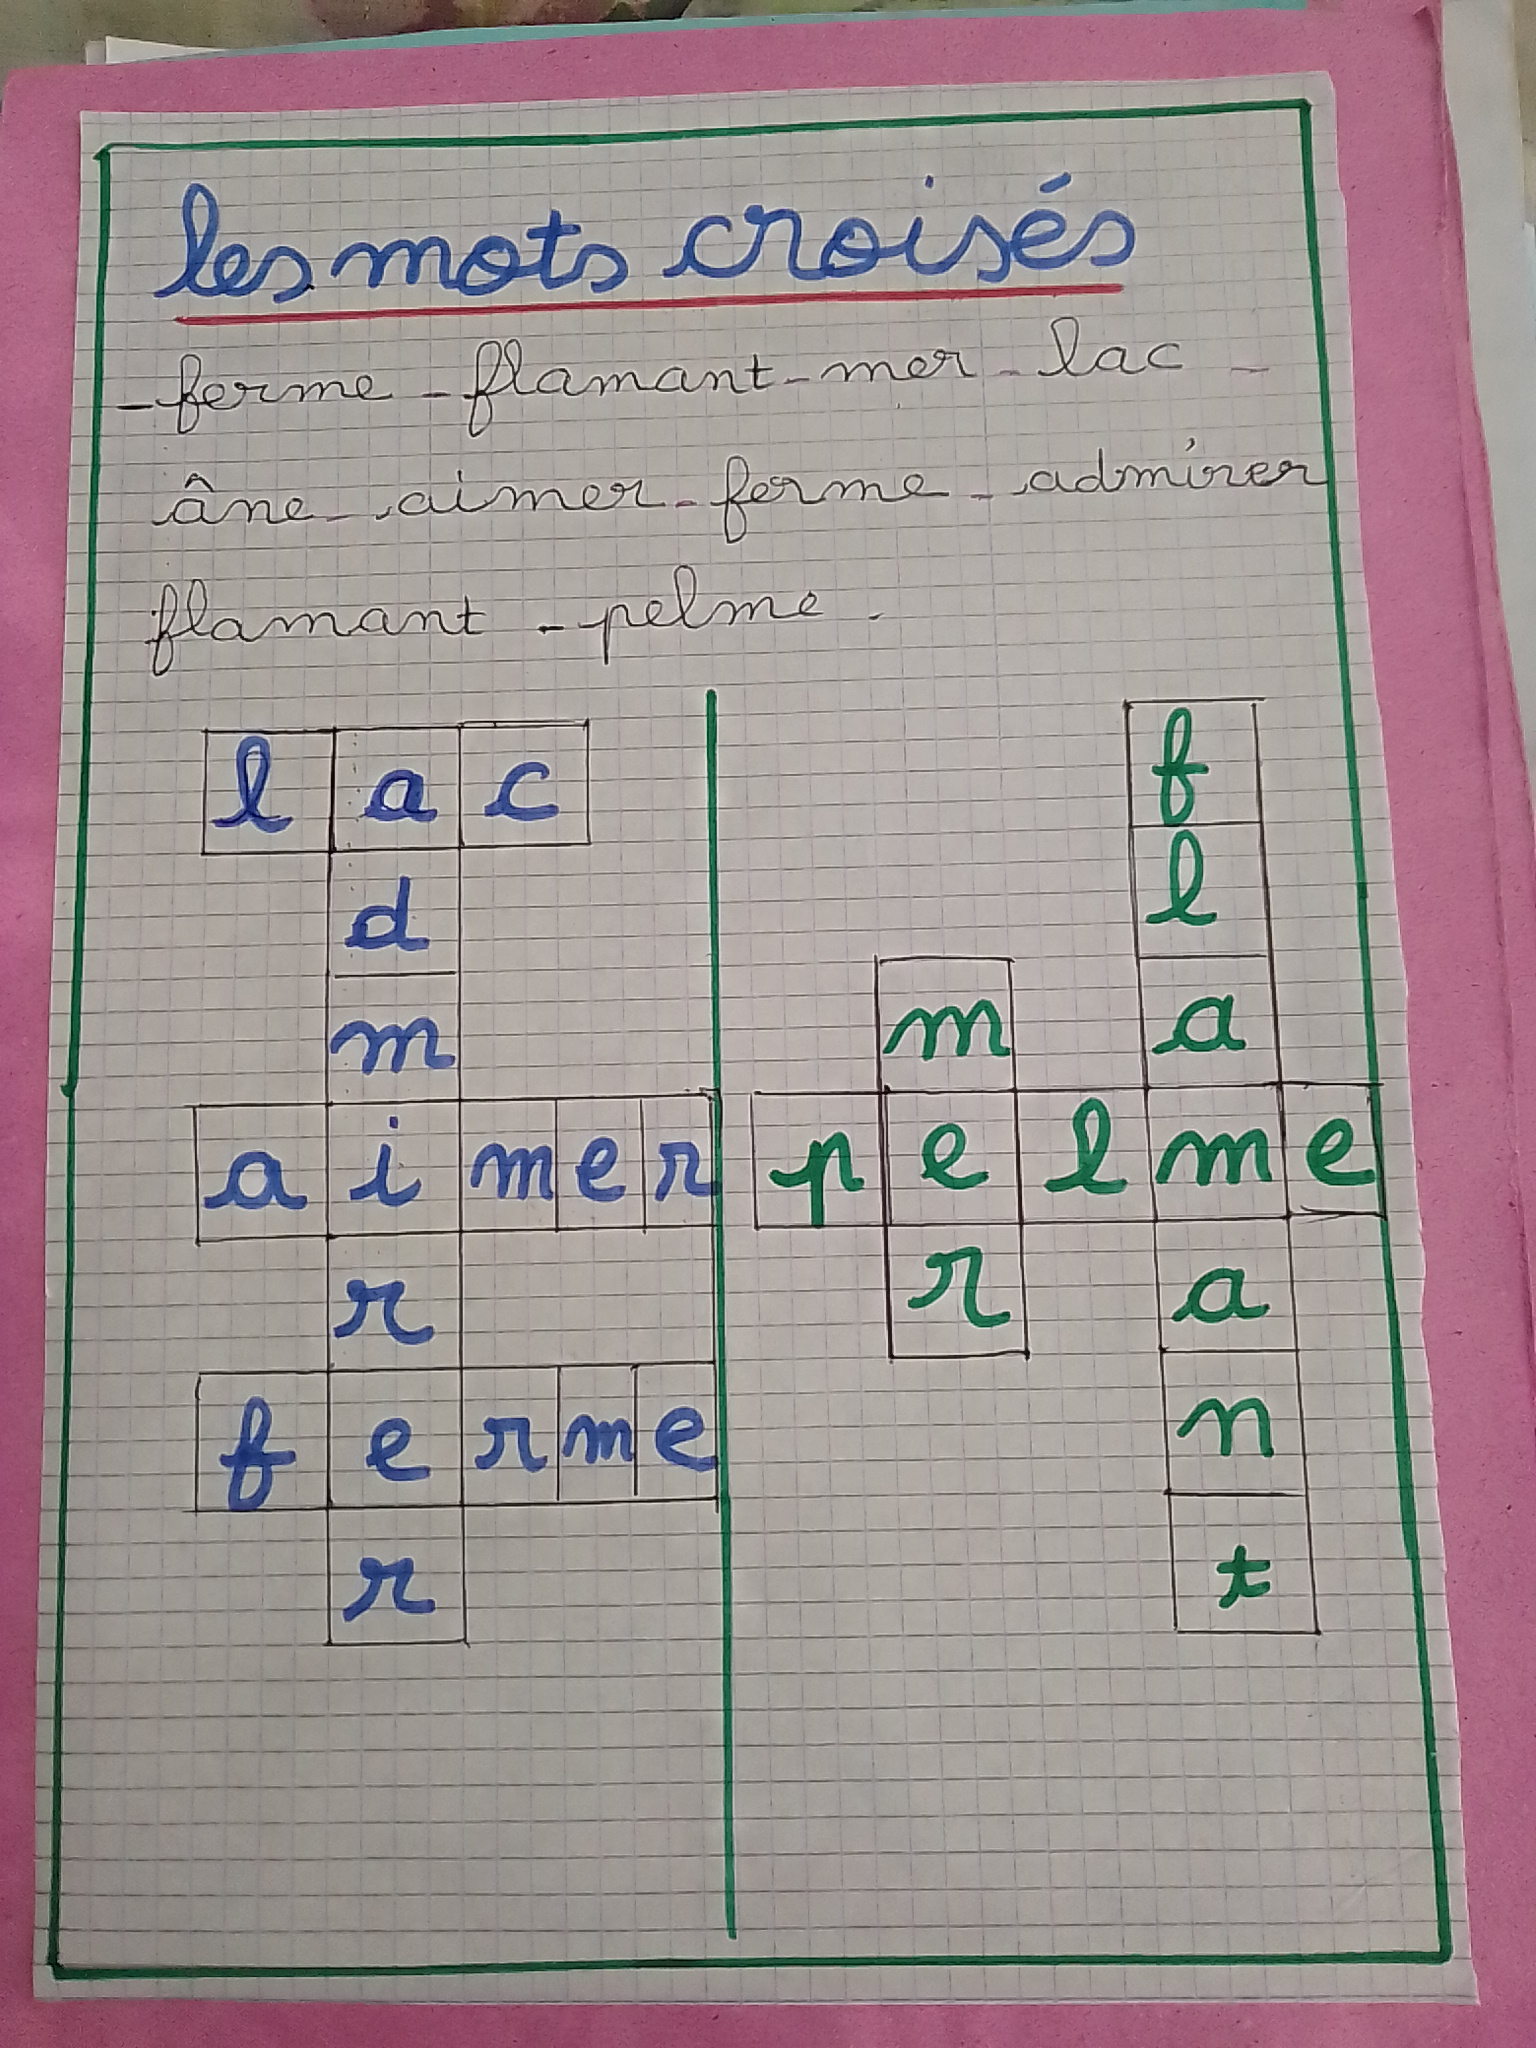 les mots croisés
- ferme - flamant - mer - lac -
âne - aimer - ferme - admirer
flamant - pelme .
l a c
d
m
a i m e r
r
f e r m e
r
f
l
m a
p e l m e
r a
n
t